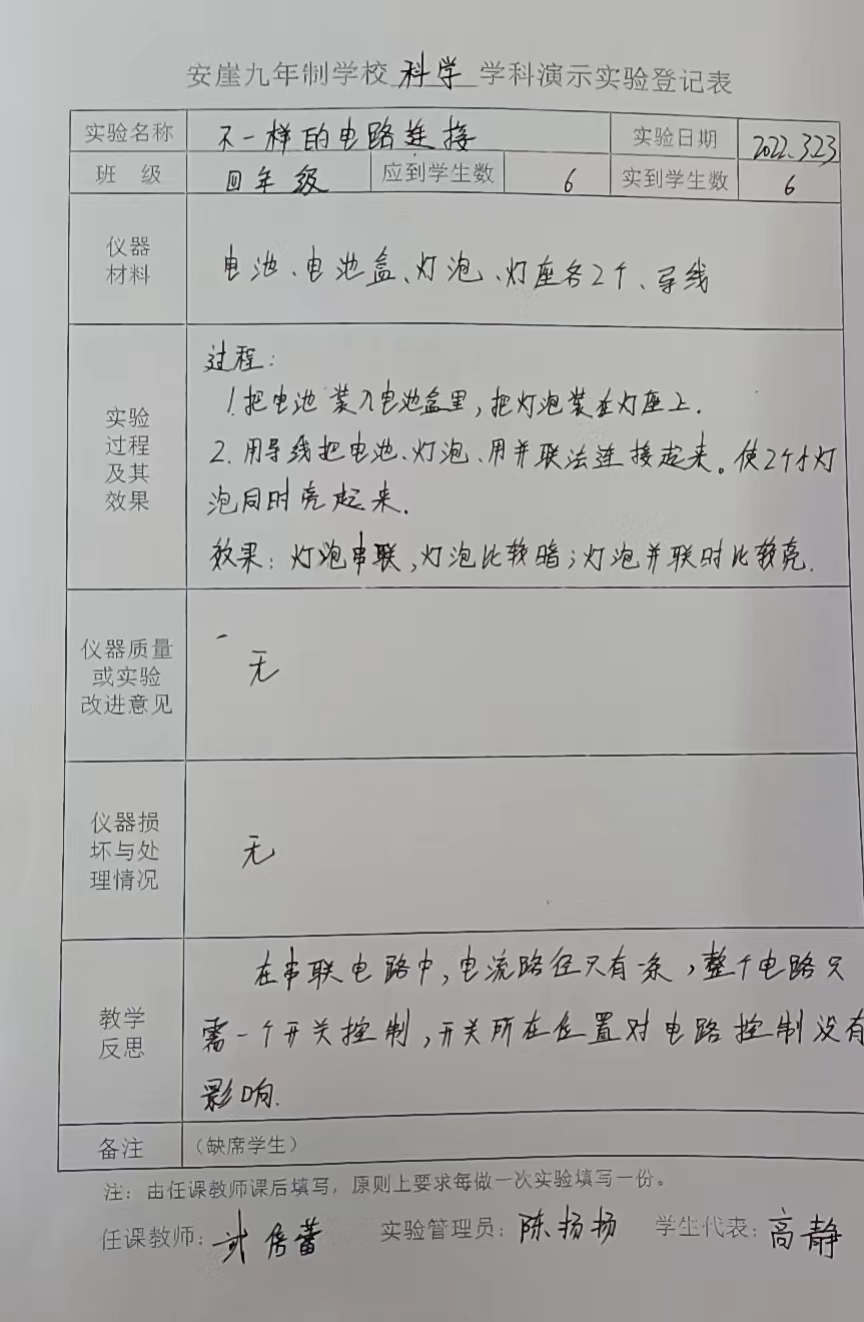 安崖九年制学校 科学 学科演示实验登记表
实验名称 不一样的电路连接 实验日期 2022.3.23
班 级 四年级 应到学生数 6 实到学生数 6
仪器
材料
电池、电池盒、灯泡、灯座各2个、导线
实验
过程
及其
效果
过程:
1.把电池装入电池盒里,把灯泡装在灯座上.
2.用导线把电池、灯泡、用并联法连接起来。使2个小灯
泡同时亮起来.
效果:灯泡串联,灯泡比较暗;灯泡并联时比较亮.
仪器质量
或实验
改进意见
无
仪器损
坏与处
理情况
无
教学
反思
在串联电路中,电流路径只有一条,整个电路只
需一个开关控制,开关所在位置对电路控制没有
影响.
备注 (缺席学生)
注:由任课教师课后填写,原则上要求每做一次实验填写一份。
任课教师: 实验管理员:陈扬扬 学生代表:高静